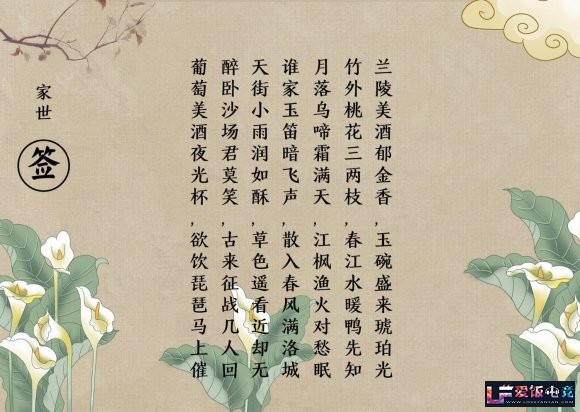 家世
签
葡萄美酒夜光杯,欲饮琵琶马上催
醉卧沙场君莫笑,古来征战几人回
天街小雨润如酥,草色遥看近却无
谁家玉笛暗飞声,散入春风满洛城
月落乌啼霜满天,江枫渔火对愁眠
竹外桃花三两枝,春江水暖鸭先知
兰陵美酒郁金香,玉碗盛来琥珀光
爱饭电竞